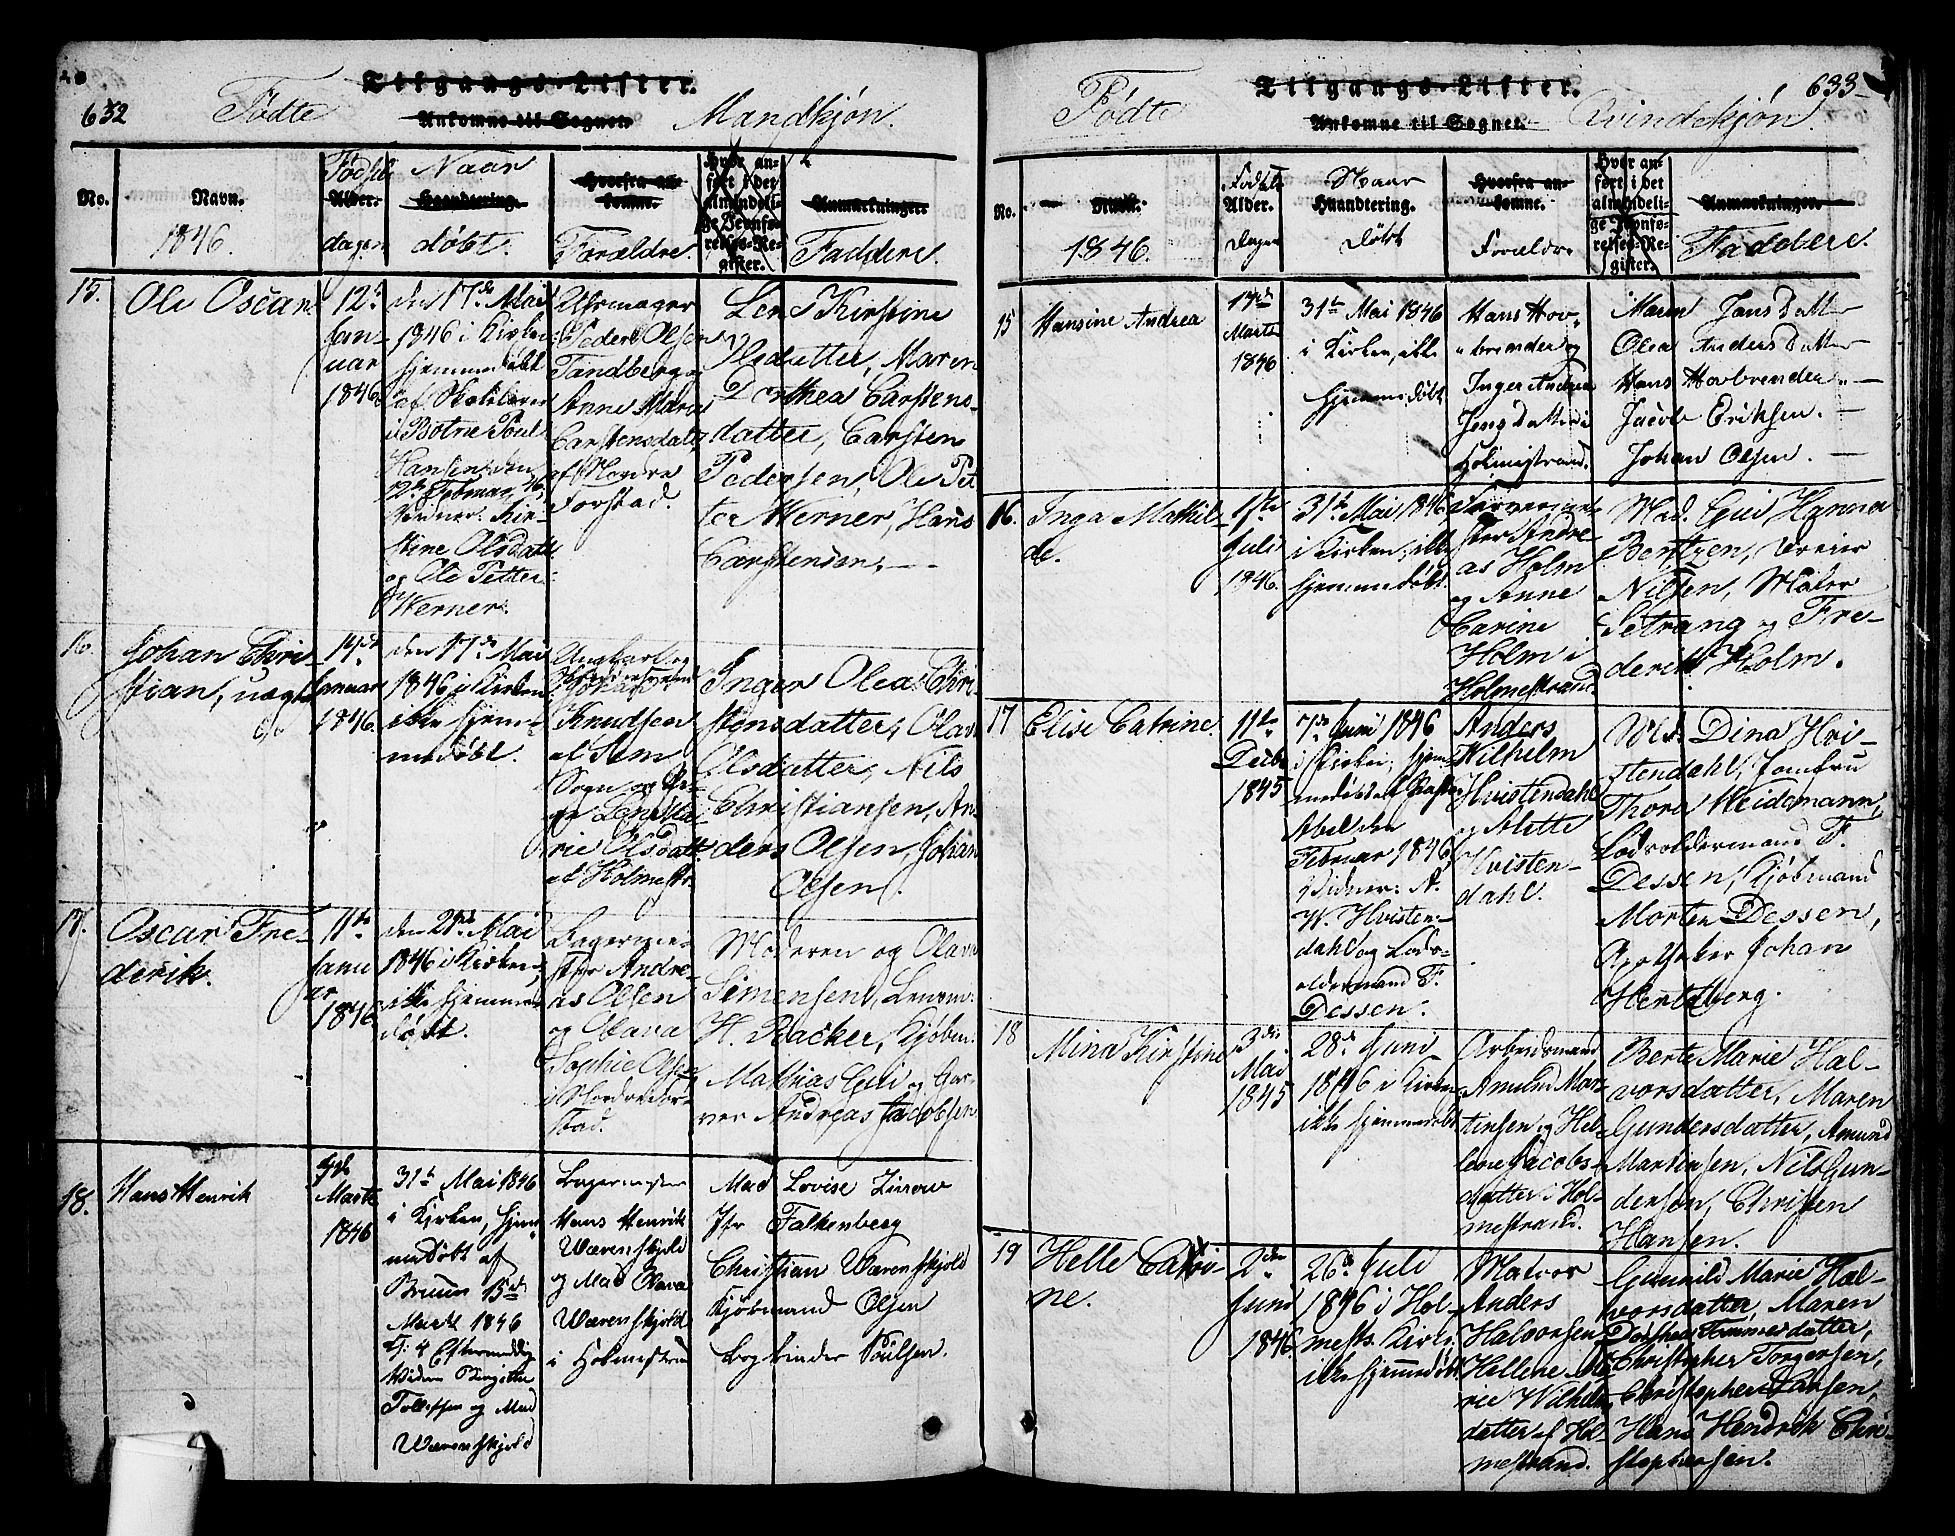 632
Tilgangs-Lister.
Fødte
Ankomne til Sognet.
Mandkjøn.
No.
Navn.
1846.
Fødsels
Alder.
dagen
Naar
Haandtering.
døbt.
Hvorfra an-
komne.
Forældre.
Hvor an-
ført i det
almindeli-
ge Jevnfø-
relses-Re-
gister.
Anmærkninger.
Faddere.
15.
Ole Oscar
12te
Janu-
uar
1846.
den 17de Mai
1846 i Kirken
hjemmedøbt
af Skolelærer
i Botne Poul
Hansen den
Februar
Vidner: Kir-
stine Olsdatt.
og Ole Petter
Werner.
Peder Olsen
Tandberg og
Anne Maria
Carstensdatt.
af Nordre
Forstad.
Lene Kirstine
Olsdatter, Maren
Dorthea Carstens-
datter, Carsten
Pedersen, Ole Pet-
ter Werner, Hans
Carstensen.
16.
Johan Chri-
stian, uægte
14de
Januar
1846.
den 17de Mai
1846 i Kirken
ikke hjem-
medøbt.
Ungkarl og
Johan
Knudsen
af Sem
Sogn og Pi-
ge Lene Ma-
rie Olsdatt.
af Holmestr.
Inger Olea Chri-
stensdatter, Olava
Olsdatter, Nils
Christiansen, An-
ders Olsen, Johan
Olsen.
17.
Oscar Fre-
derik.
11te
Janu-
ar
1846
den 21de Mai
1846 i Kirken,
ikke hjemme-
døbt.
Bagermei-
ster Andre-
as Olsen
og Olava
Sophie Olsen
i Nordre For-
stad.
Moderen og Olava
Simensen,
H. Backer, Kjøbm.
Mathias Gui og Gar-
ver Andreas Jacobsen
18.
Hans Henrik
Marts
1846
31te Mai 1846
i Kirken, hjem-
medøbt af
Bruun 15de
Marts 1846
Kl. 4 Eftermiddag
Vidner Birgitte
Tollefsen og Mad
Wærenskjold
Bagermester
Hans Henrik
Wærenskjold
og Mad Olava
Wærenskjold
i Holmestrand
Mad Lovise Zinow
Jfr Falkenberg
Christian Wærenskjold
Kjøbmand Olsen
Bogbinder Poulsen.
633
Tilgangs-Lister.
Fødte
Ankomne til Sognet.
Qvindekjøn.
No.
Navn.
1846.
Fødsels
Alder.
Dagen
Naar
Haandtering.
døbt
Hvorfra an-
komne.
Forældre
Hvor an-
ført i det
almindeli-
ge Jevnfø-
relses-Re-
gister.
Anmærkninger.
Faddere.
15
Hansine Andrea
17de
Marts
1846
31te Mai 1846
i Kirken, ikke
hjemmedøbt
Hans Hov-
brender og
Inger Andrea
Jens Datter i
Holmestrand.
Maren Jans Datter
Olea Anders Datter
Hans Hovbrender
Jacob Eriksen.
Johan Olsen.
16.
Inga Mathil-
de.
1ste
Juli
1846.
31te Mai 1846
i Kirken, ikke
hjemmedøbt.
Farvermei-
ster Andre-
as Holm
og Anne
Carine
Holm i
Holmestrand
Mad. Gui Hanna
Berntzen,
Nilsen, Maler
Setrang og Fre-
derik Holm.
17
Elise Catrine.
11te
Decbr
1845
7de Juni 1846
i Kirken, hjem-
medøbt af Pastor
Abel den
Februar 1846,
Vidner: A.
W. Hvisten-
dahl og Lods-
oldermand F.
Dessen.
Anders
Wilhelm
Hvistendahl
og Alette
Hvisten-
dahl.
Md. Dina Hvi-
stendahl, Jomfru
Thora Heidemann,
Lodsoldermand F.
Dessen, Kjøbmand
Morten Dessen,
Apotheker Johan
Hertzberg.
18
Mina Kirstine
3die
Mai
1845
28de Juni
1846 i Kirken
ikke hjemmedøbt
Arbeidsmand
Amund Mar-
tinsen og Hel-
lene Jacobs-
datter i Hol-
mestrand.
Berte Marie Hal-
vorsdatter, Maren
Gundersdatter, Amund
Martinsen, Nils Gun-
dersen, Christen
Hansen.
19
Helle Catri-
ne.
2den
Juni
1846.
26de Juli
1846 i Hol-
mests. Kirke
ikke hjemmedøbt
Matros
Anders
Halvorsen
Hellene Ma-
rie Wilhelms-
datter af Hol-
mestrand.
Gunnild Marie Hal-
vorsdatter, Maren
Dorthea Tommesdatter,
Christopher Torgersen,
Christopher Larsen,
Hans Hendrik Chri-
stophersen.